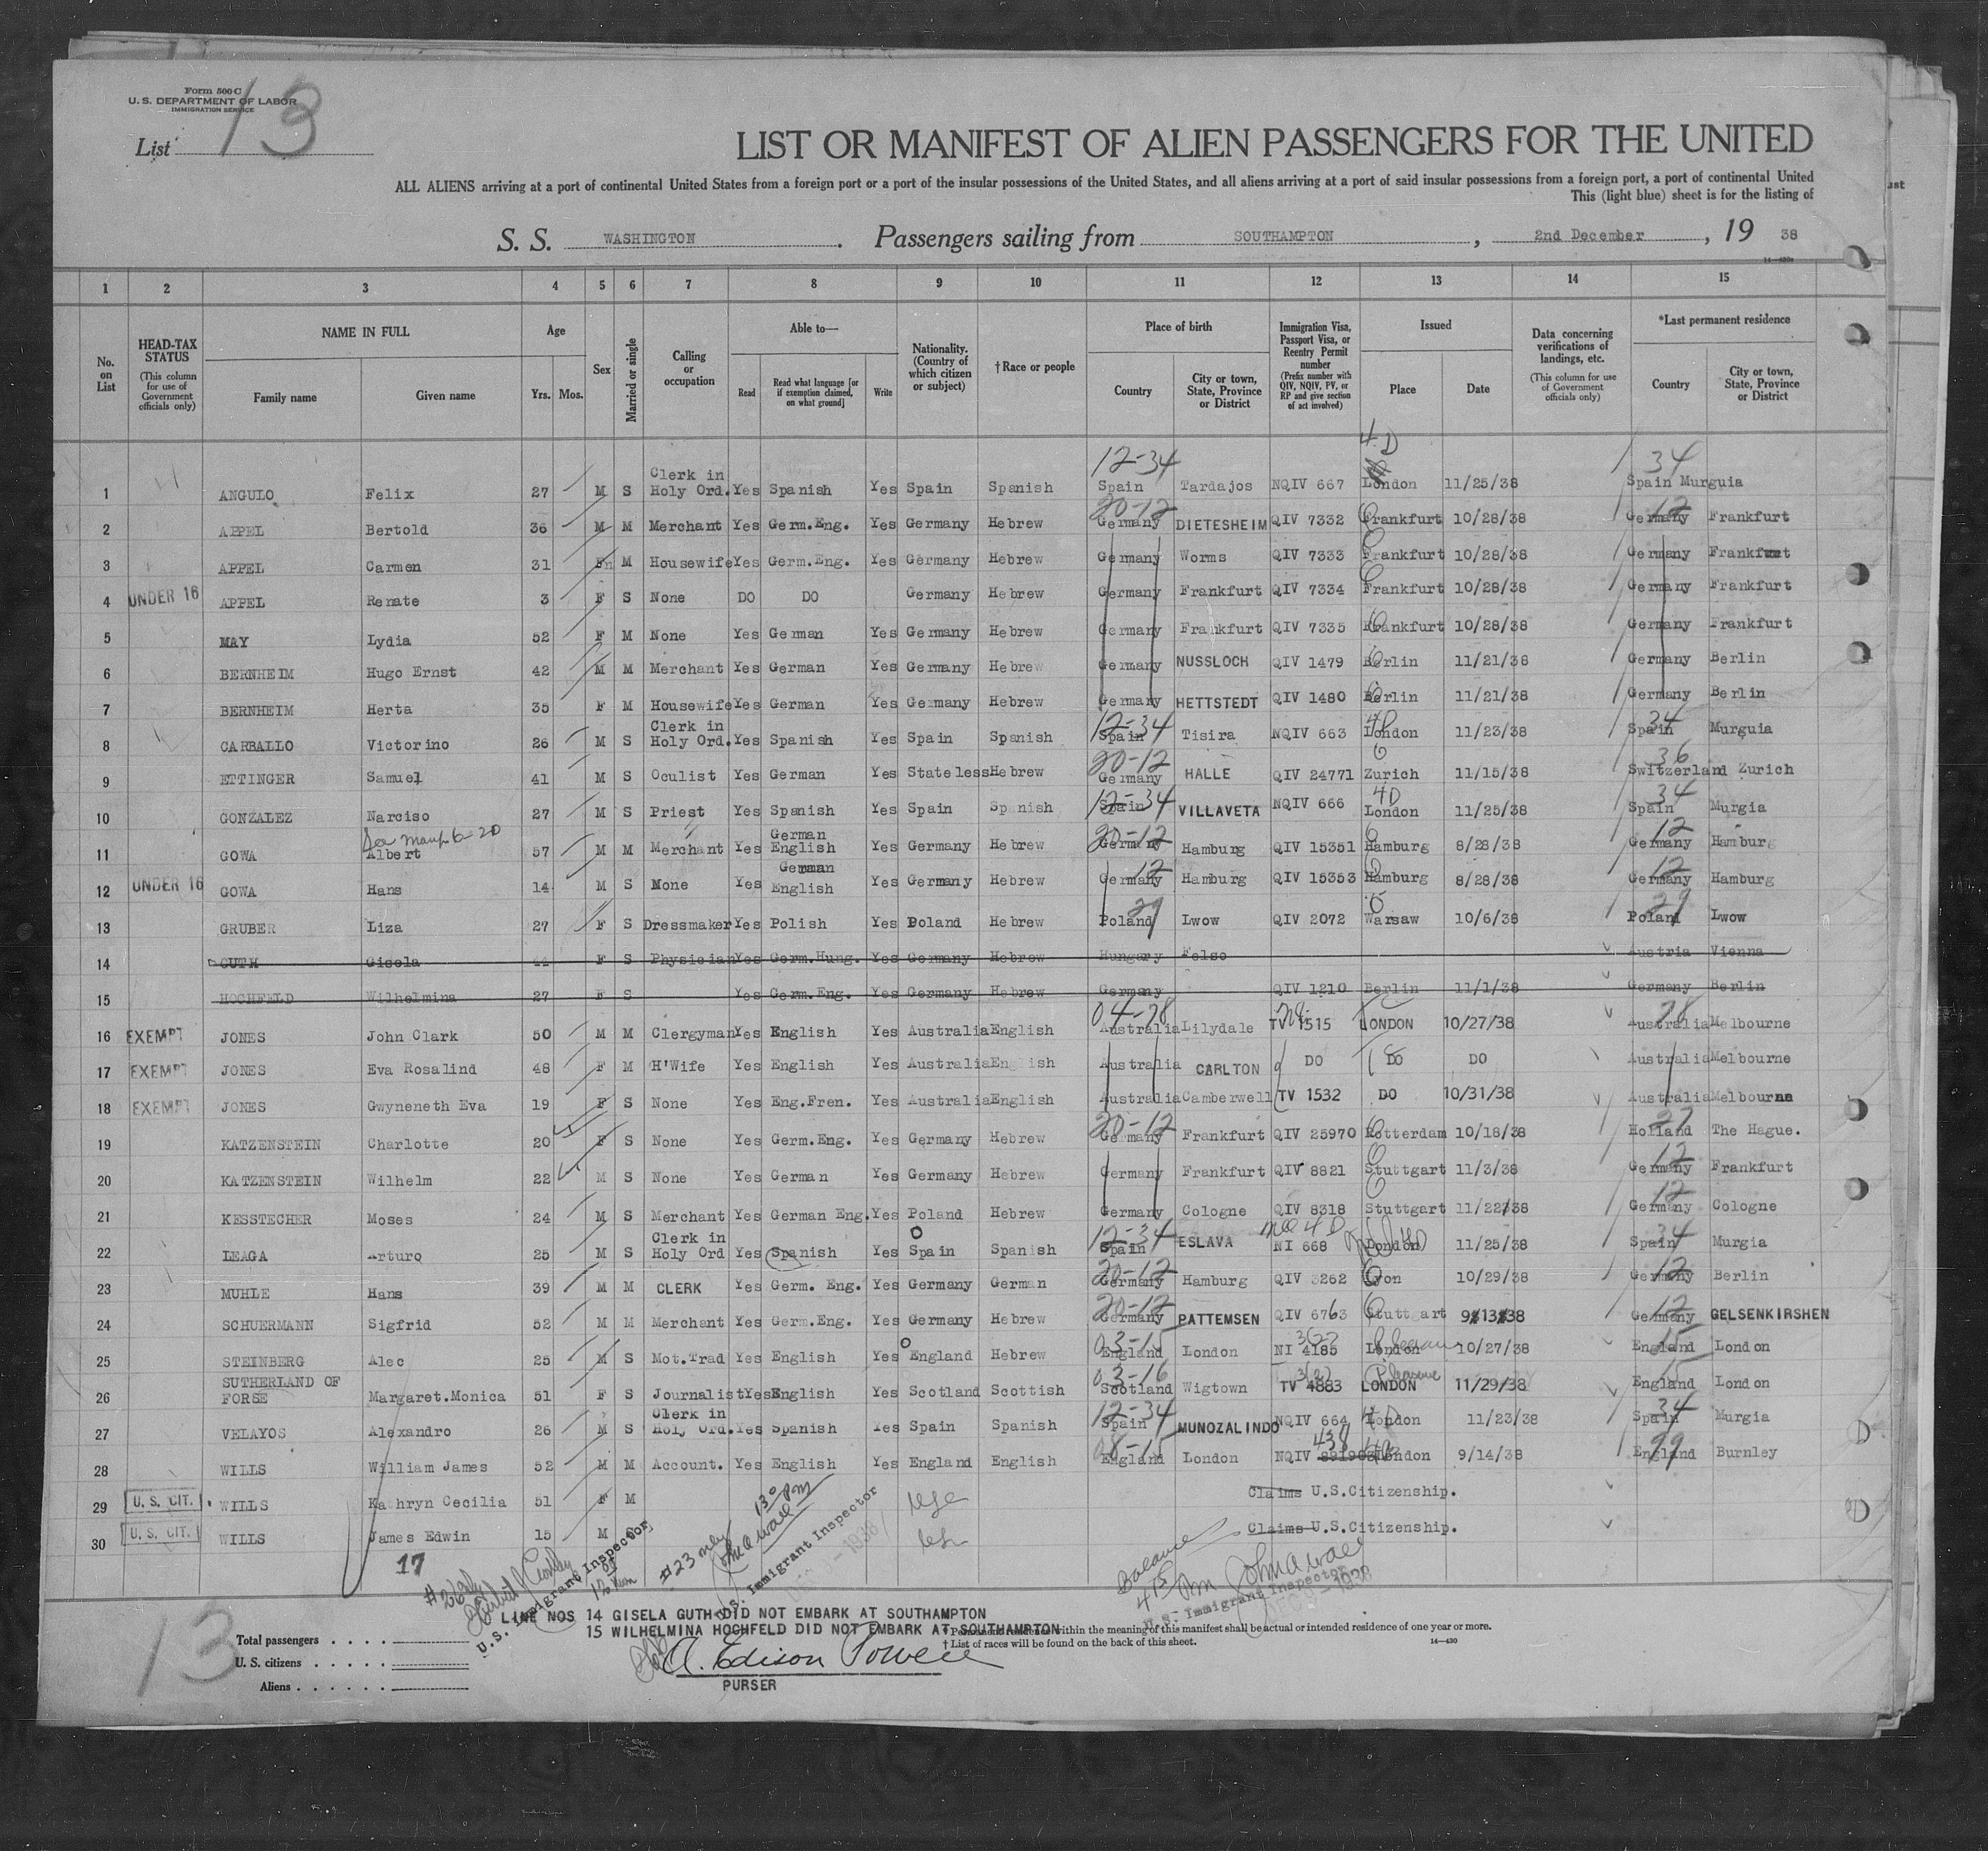 Form 500 C
U. S. DEPARTMENT OF LABOR
IMMIGRATION SERVICE
List 13
LIST OR MANIFEST OF ALIEN PASSENGERS FOR THE UNITED
ALL ALIENS arriving at a port of continental United States from a foreign port or a port of the insular possessions of the United States, and all aliens arriving at a port of said insular possessions from a foreign port, a port of continental United
This (light blue) sheet is for the listing of
S. S. WASHINGTON. Passengers sailing from SOUTHAMPTON, 2nd December, 19 38
1 2 3 4 5 6 7 8 9 10 11 12 13 14 15
No. on List
HEAD-TAX STATUS (This column for use of Government officials only)
NAME IN FULL Family name Given name
Age Yrs. Mos.
Sex
Married or single
Calling or occupation
Able to— Read Read what language [or if exemption claimed, on what ground] Write
Nationality. (Country of which citizen or subject)
†Race or people
Place of birth Country City or town, State, Province or District
Immigration Visa, Passport Visa, or Reentry Permit number (Prefix number with QIV, NQIV, PV, or RP and give section of act involved)
Issued Place Date
Data concerning verifications of landings, etc. (This column for use of Government officials only)
*Last permanent residence Country City or town, State, Province or District
12-34 4 D 34
1 ANGULO Felix 27 M S Clerk in Holy Ord. Yes Spanish Yes Spain Spanish Spain Tardajos NQIV 667 London 11/25/38 Spain Murguia
20-12 12
2 APPEL Bertold 36 M M Merchant Yes Germ.Eng. Yes Germany Hebrew Germany DIETESHEIM QIV 7332 Frankfurt 10/28/38 Germany Frankfurt
3 APPEL Carmen 31 F M Housewife Yes Germ.Eng. Yes Germany Hebrew Germany Worms QIV 7333 Frankfurt 10/28/38 Germany Frankfurt
4 UNDER 16 APPEL Renate 3 F S None DO DO Germany Hebrew Germany Frankfurt QIV 7334 Frankfurt 10/28/38 Germany Frankfurt
5 MAY Lydia 52 F M None Yes German Yes Germany Hebrew Germany Frankfurt QIV 7335 Frankfurt 10/28/38 Germany Frankfurt
6 BERNHEIM Hugo Ernst 42 M M Merchant Yes German Yes Germany Hebrew Germany NUSSLOCH QIV 1479 Berlin 11/21/38 Germany Berlin
7 BERNHEIM Herta 35 F M Housewife Yes German Yes Germany Hebrew Germany HETTSTEDT QIV 1480 Berlin 11/21/38 Germany Berlin
12-34 4D 34
8 CARBALLO Victorino 26 M S Clerk in Holy Ord. Yes Spanish Yes Spain Spanish Spain Tisira NQIV 663 London 11/23/38 Spain Murguia
20-12 36
9 ETTINGER Samuel 41 M S Oculist Yes German Yes Stateless Hebrew Germany HALLE QIV 24771 Zurich 11/15/38 Switzerland Zurich
12-34 4D 34
10 GONZALEZ Narciso 27 M S Priest Yes Spanish Yes Spain Spanish Spain VILLAVETA NQIV 666 London 11/25/38 Spain Murgia
20-12 12
11 GOWA Albert 57 M M Merchant Yes German English Yes Germany Hebrew Germany Hamburg QIV 15351 Hamburg 8/28/38 Germany Hamburg
12 12
12 UNDER 16 GOWA Hans 14 M S None Yes German English Yes Germany Hebrew Germany Hamburg QIV 15353 Hamburg 8/28/38 Germany Hamburg
29 29
13 GRUBER Liza 27 F S Dressmaker Yes Polish Yes Poland Hebrew Poland Lwow QIV 2072 Warsaw 10/6/38 Poland Lwow
14 GUTH Gisela 44 F S Physician Yes Germ.Hung. Yes Germany Hebrew Hungary Felso Austria Vienna
15 HOCHFELD Wilhelmina 27 F S Yes Germ.Eng. Yes Germany Hebrew Germany QIV 1210 Berlin 11/1/38 Germany Berlin
04-28 28
16 EXEMPT JONES John Clark 50 M M Clergyman Yes English Yes Australia English Australia Lilydale TV 1515 LONDON 10/27/38 Australia Melbourne
17 EXEMPT JONES Eva Rosalind 48 F M H'Wife Yes English Yes Australia English Australia CARLTON DO DO DO Australia Melbourne
18 EXEMPT JONES Gwyneneth Eva 19 F S None Yes Eng.Fren. Yes Australia English Australia Camberwell TV 1532 DO 10/31/38 Australia Melbourne
20-12 27
19 KATZENSTEIN Charlotte 20 F S None Yes Germ.Eng. Yes Germany Hebrew Germany Frankfurt QIV 25970 Rotterdam 10/18/38 Holland The Hague.
12
20 KATZENSTEIN Wilhelm 22 M S None Yes German Yes Germany Hebrew Germany Frankfurt QIV 8821 Stuttgart 11/3/38 Germany Frankfurt
12
21 KESSTECHER Moses 24 M S Merchant Yes German Eng. Yes Poland Hebrew Germany Cologne QIV 8318 Stuttgart 11/22/38 Germany Cologne
12-34 34
22 LEAGA Arturo 25 M S Clerk in Holy Ord Yes Spanish Yes Spain Spanish Spain ESLAVA NI 668 London 11/25/38 Spain Murgia
20-12 12
23 MUHLE Hans 39 M M CLERK Yes Germ. Eng. Yes Germany German Germany Hamburg QIV 3262 Lyon 10/29/38 Germany Berlin
20-12 12
24 SCHUERMANN Sigfrid 52 M M Merchant Yes Germ.Eng. Yes Germany Hebrew Germany PATTEMSEN QIV 6763 Stuttgart 9/13/38 Germany GELSENKIRSHEN
03-15 3(2) Pleasure 15
25 STEINBERG Alec 25 M S Mot.Trad Yes English Yes England Hebrew England London NI 4185 London 10/27/38 England London
03-16 3(2) Pleasure 15
26 SUTHERLAND OF FORSE Margaret.Monica 51 F S Journalist Yes English Yes Scotland Scottish Scotland Wigtown TV 4883 LONDON 11/29/38 England London
12-34 4D 34
27 VELAYOS Alexandro 26 M S Clerk in Holy Ord. Yes Spanish Yes Spain Spanish Spain MUNOZALINDO NQIV 664 London 11/23/38 Spain Murgia
08-15 99
28 WILLS William James 52 M M Account. Yes English Yes England English England London NQIV London 9/14/38 England Burnley
29 U. S. CIT. WILLS Kathryn Cecilia 51 F M Claims U.S.Citizenship.
30 U. S. CIT. WILLS James Edwin 15 M S Claims U.S.Citizenship.
17
U. S. Immigrant Inspector
#23 only John A Wall
U. S. Immigrant Inspector
Balance 415 pm John A Wall
U. S. Immigrant Inspector
LINE NOS 14 GISELA GUTH DID NOT EMBARK AT SOUTHAMPTON
15 WILHELMINA HOCHFELD DID NOT EMBARK AT SOUTHAMPTON
within the meaning of this manifest shall be actual or intended residence of one year or more.
† List of races will be found on the back of this sheet.
14—430
13
Total passengers
U. S. citizens
Aliens
A. Edison Powell
PURSER